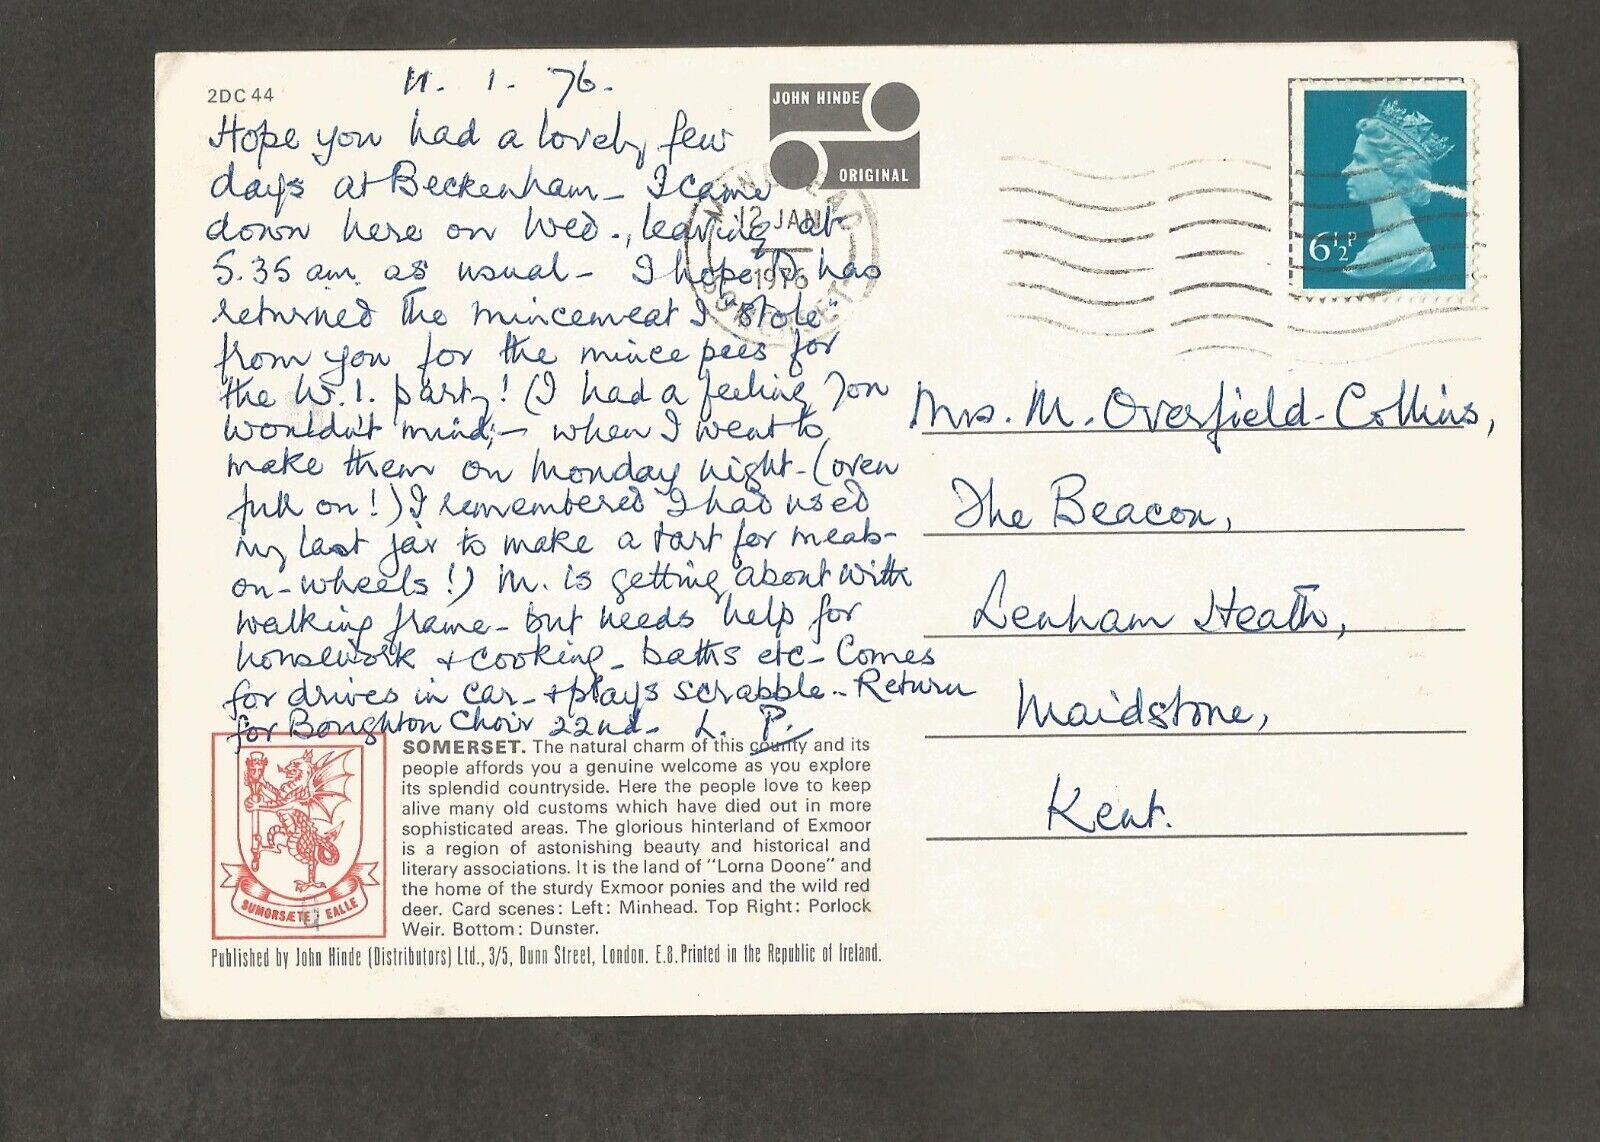 2DC 44
11. 1. 76.
Hope you had a lovely few
days at Beckenham - I came
down here on Wed., leaving at
5.35 am. as usual - I hope has
returned the mincemeat I "stole"
from you for the mince pees for
the W.I. party! (I had a feeling you
wouldn't mind; - when I went to
make them on Monday night - (oven
full on!) I remembered I had used
my last jar to make a tart for meals-
on-wheels!) M. is getting about with
walking frame - but needs help for
housework + cooking - baths etc - Comes
for drives in car - + plays scrabble - Return
for Boughton Choir 22nd - L. P.
JOHN HINDE
ORIGINAL
MINEHEAD
12 JAN
1976
SOMERSET
6½P
Mrs. M. Overfield-Collins,
The Beacon,
Lenham Heath,
Maidstone,
Kent.
SUMORSÆTE EALLE
SOMERSET. The natural charm of this county and its
people affords you a genuine welcome as you explore
its splendid countryside. Here the people love to keep
alive many old customs which have died out in more
sophisticated areas. The glorious hinterland of Exmoor
is a region of astonishing beauty and historical and
literary associations. It is the land of "Lorna Doone" and
the home of the sturdy Exmoor ponies and the wild red
deer. Card scenes: Left: Minhead. Top Right: Porlock
Weir. Bottom: Dunster.
Published by John Hinde (Distributors) Ltd., 3/5, Dunn Street, London. E.8. Printed in the Republic of Ireland.